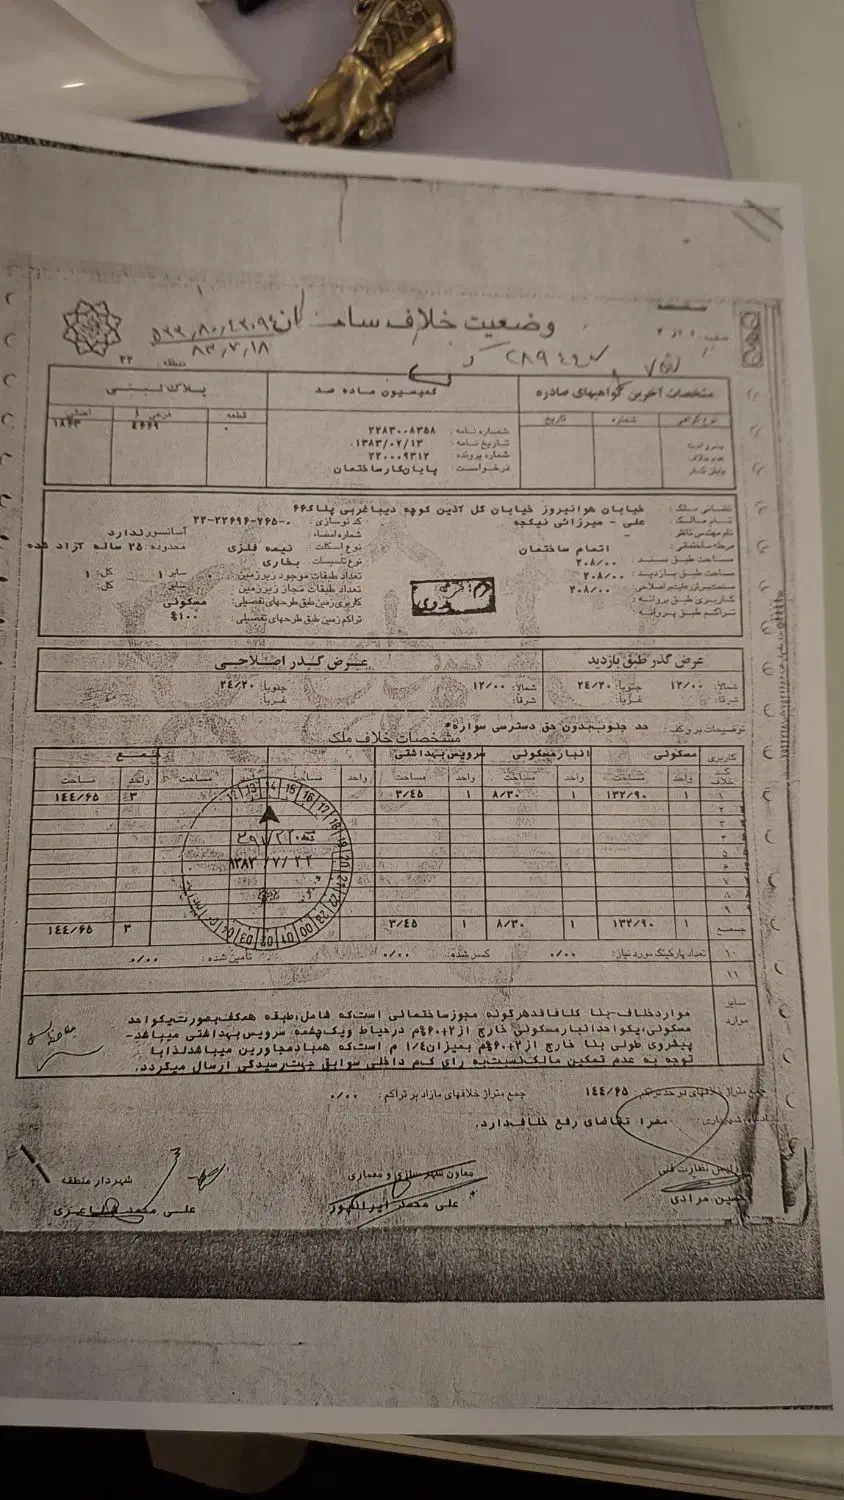 وضعیت خلاف ساختمان
۸۳,۷,۱۸
منطقه: ۲۲
مشخصات آخرین گواهیهای صادره
کمیسیون ماده صد
پلاک ثبتی
نوع گواهی شماره تاریخ
قطعه فرعی ۱ اصلی
شماره نامه: ۲۲۸۳۰۰۸۳۵۸
تاریخ نامه: ۱۳۸۳/۰۷/۱۳
شماره پرونده: ۲۲۰۰۰۹۳۱۲
درخواست: پایان کار ساختمان
نشانی ملک: خیابان هوانیروز خیابان گل آذین کوچه دیبا غربی پلاک ۶۶
نام مالک: علی - میرزائی نیکجه
کد نوسازی: ۲۲-۲۲۶۹۶-۷۶۵-۰
نام مهندس ناظر: -
شماره اعضاء:
آسانسور: ندارد
مرحله ساختمانی: اتمام ساختمان
نوع اسکلت: نیمه فلزی
محدوده: ۲۵ ساله آزاد شده
مساحت طبق سند: ۲۰۸/۰۰
نوع تاسیسات: بخاری
مساحت طبق بازدید: ۲۰۸/۰۰
تعداد طبقات موجود زیرزمین: ۰ سایر: ۱ کل: ۱
۲۰۸/۰۰
تعداد طبقات مجاز زیرزمین: سایر: کل:
کاربری طبق پروانه:
کاربری زمین طبق طرحهای تفصیلی: مسکونی
تراکم طبق پروانه:
تراکم زمین طبق طرحهای تفصیلی: ۱۰۰٪
عرض گذر طبق بازدید
عرض گذر اصلاحی
شمالاً: ۱۲/۰۰ جنوباً: ۲۴/۲۰
شمالاً: ۱۲/۰۰ جنوباً: ۲۴/۲۰
شرقاً: غرباً:
شرقاً: غرباً:
توضیحات بر و کف: حد جنوب بدون حق دسترسی سواره*
مشخصات خلاف ملک
کاربری مسکونی انبار مسکونی سرویس بهداشتی جمع
خلاف واحد مساحت واحد مساحت واحد مساحت واحد مساحت واحد مساحت واحد مساحت
۱ ۱ ۱۳۲/۹۰ ۱ ۸/۳۰ ۱ ۳/۴۵ ۳ ۱۴۴/۶۵
۲
۳
۴
۵
۶
۷
۸
۹
جمع ۱ ۱۳۲/۹۰ ۱ ۸/۳۰ ۱ ۳/۴۵ ۳ ۱۴۴/۶۵
۱۰ تعداد پارکینگ مورد نیاز: ۰/۰۰ کسر شده: ۰/۰۰ تأمین شده: ۰/۰۰
۱۱
۱۳۸۳/۷/۲۲
سایر موارد
موارد خلاف-بنا کلا فاقد هرگونه مجوز ساختمانی است که شامل: طبقه همکف بصورت یکواحد
مسکونی، یکواحد انبار مسکونی خارج از ۲+۶۰٪م درحیاط ویک چشمه سرویس بهداشتی میباشد-
پیشروی طولی بنا خارج از ۲+۶۰٪م بمیزان ۱/۴ م است که همباد مجاورین میباشد لذا با
توجه به عدم تمکین مالک نسبت به رای کم داخلی سوابق جهت رسیدگی ارسال میگردد.
جمع متراژ خلافهای در حد تراکم: ۱۴۴/۶۵
جمع متراژ خلافهای مازاد بر تراکم: ۰/۰۰
مصرا تقاضای رفع خلاف دارد.
رئیس نظارت فنی
معاون شهرسازی و معماری
شهردار منطقه
حسین مرادی
علی محمد ایرانپور
علی محمد شاعری